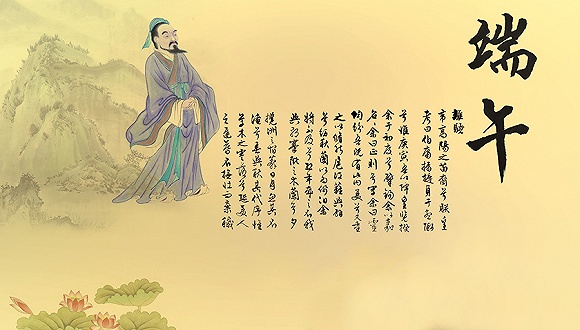 端午
離騷
帝高陽之苗裔兮朕皇
考曰伯庸攝提貞于孟陬
兮惟庚寅吾以降皇覽揆
余于初度兮肇錫余以嘉
名名余曰正則兮字余曰靈
均紛吾既有此內美兮又重
之以修能扈江離與辟
兮紉秋蘭以為佩汩余
將不及兮恐年歲之不我
與朝搴阰之木蘭兮夕
攬洲之宿莽日月忽其不
淹兮春與秋其代序惟
草木之零落兮恐美人
之遲暮不撫壯而棄穢